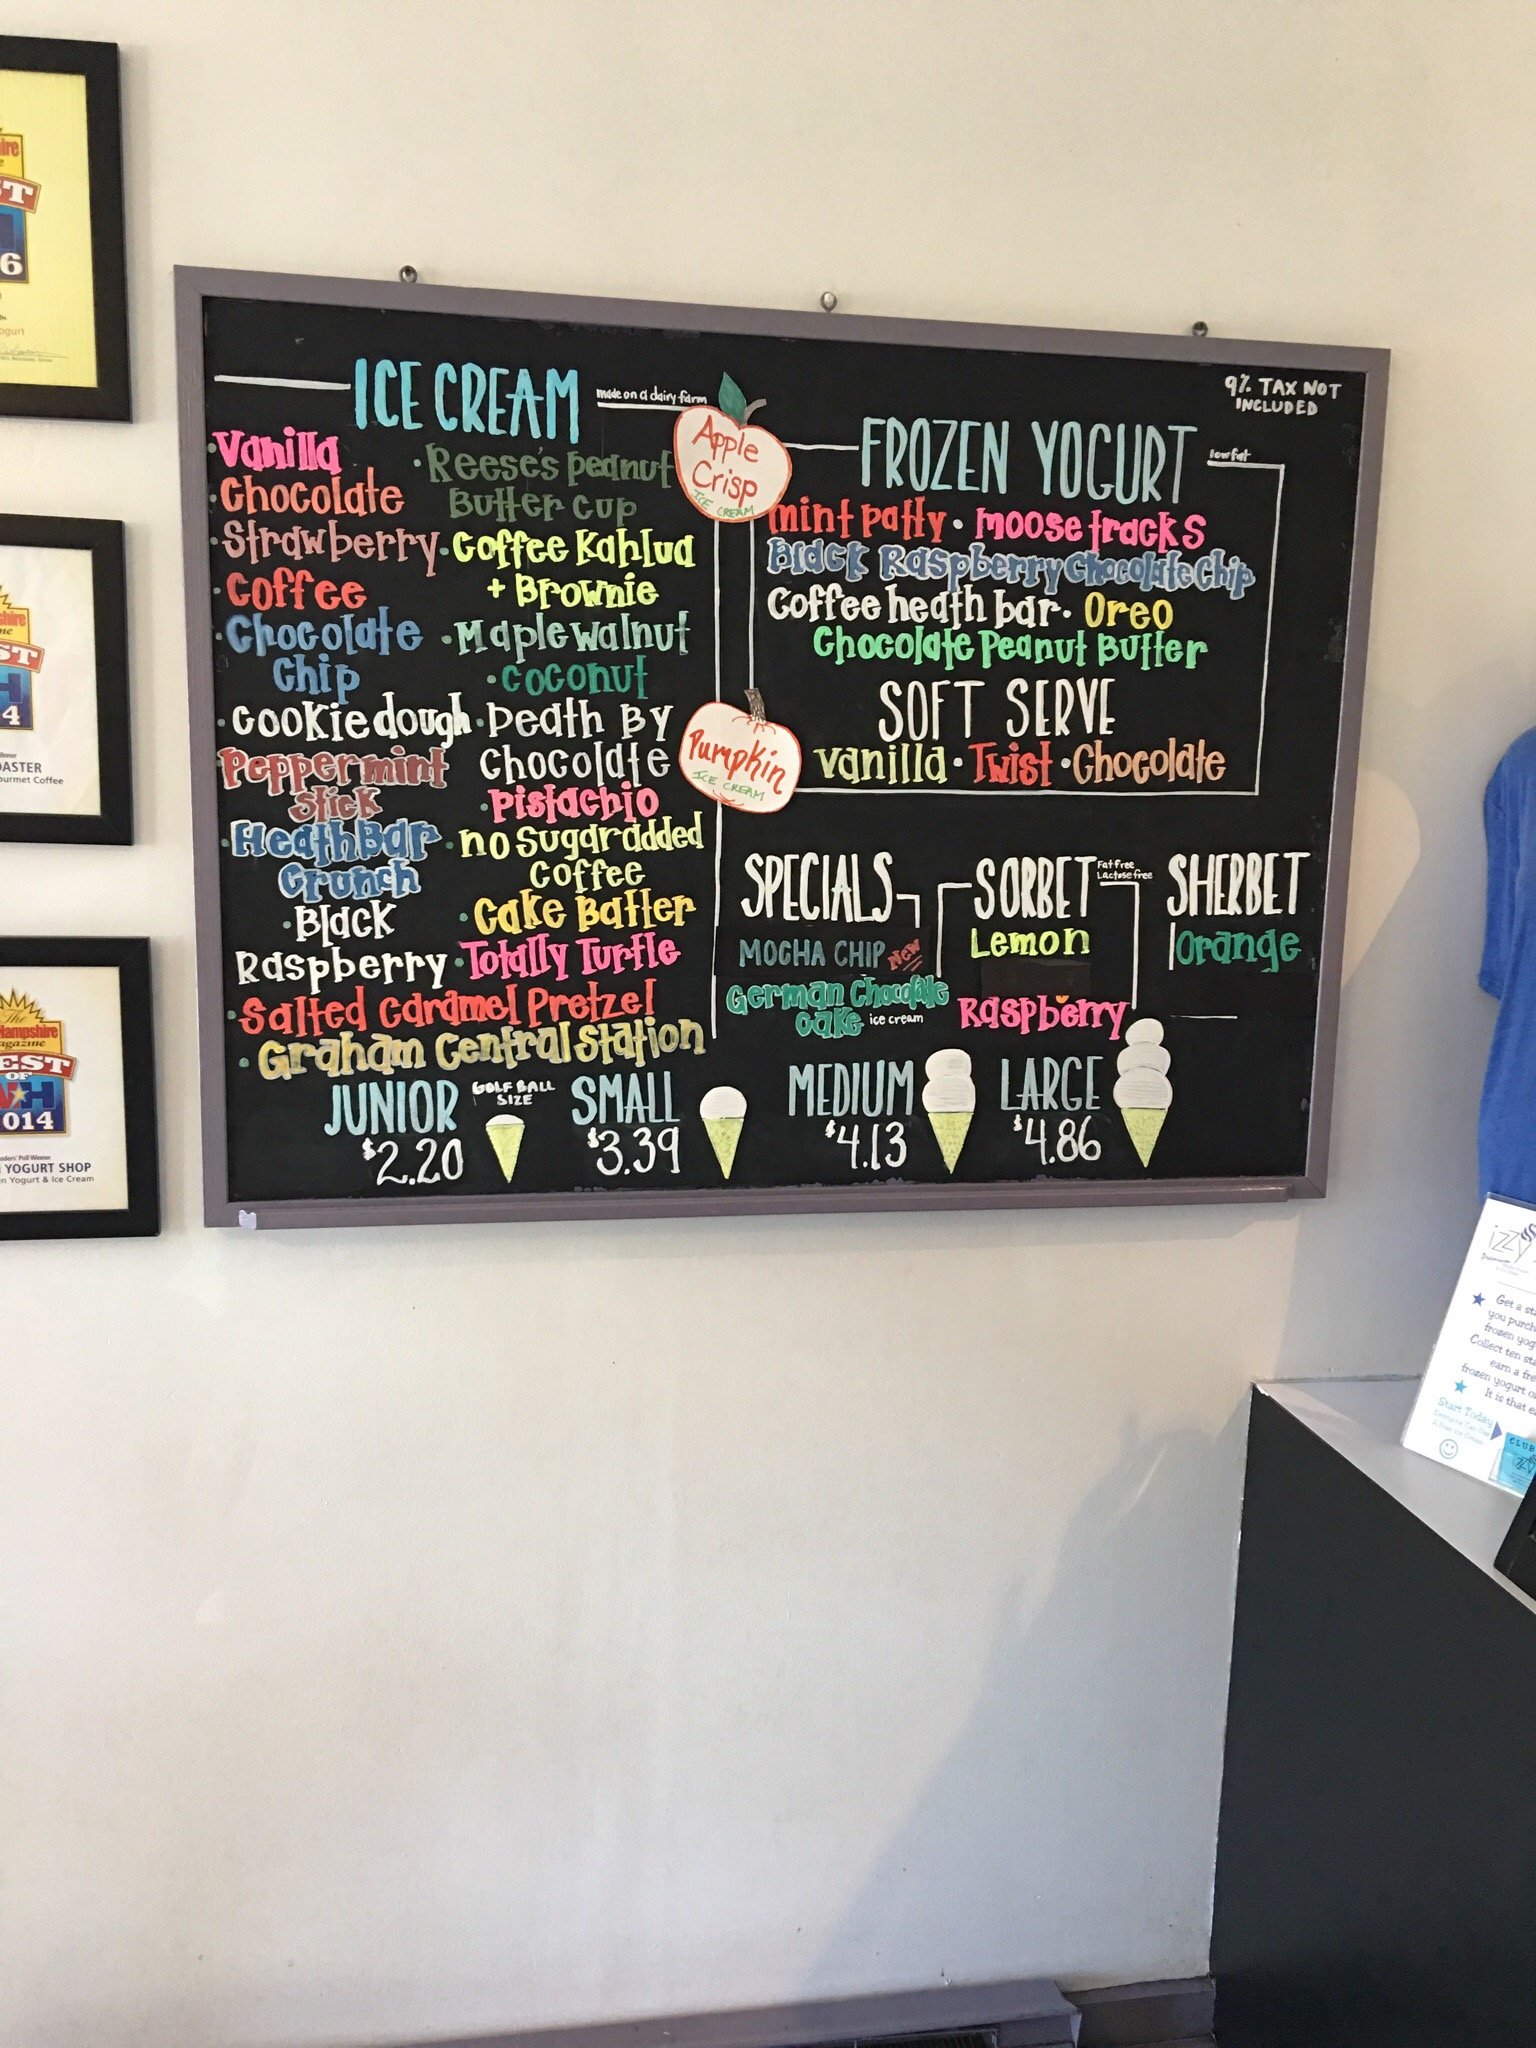 ICE CREAM
made on a dairy farm
Vanilla
Chocolate
Strawberry
Coffee
Chocolate
Chip
Cookie dough
Peppermint
Stick
Heath Bar
Crunch
Black
Raspberry
Reese's peanut
Butter cup
Coffee Kahlua
+ Brownie
Maple walnut
coconut
Death By
Chocolate
Pistachio
no Sugar added
Coffee
Cake Batter
Totally Turtle
Salted Caramel Pretzel
Graham Central Station
Apple
Crisp
ICE CREAM
Pumpkin
ICE CREAM
9% TAX NOT
INCLUDED
FROZEN YOGURT
lowfat
mint patty · moose tracks
Black Raspberry Chocolate Chip
Coffee heath bar · Oreo
Chocolate Peanut Butter
SOFT SERVE
vanilla · Twist · Chocolate
SPECIALS
MOCHA CHIP New
German Chocolate
Cake ice cream
SORBET
Fat free
Lactose free
Lemon
Raspberry
SHERBET
Orange
JUNIOR
$2.20
GOLF BALL
SIZE
SMALL
$3.39
MEDIUM
$4.13
LARGE
$4.86
6
ogurt
4
OASTER
ourmet Coffee
The
Hampshire
agazine
EST
OF
NH
014
aders' Poll Winner
YOGURT SHOP
n Yogurt & Ice Cream
izzy
Get a
you purch
frozen yog
Collect ten sta
earn a fre
frozen yogurt o
It is that ea
Start Today
CLUB